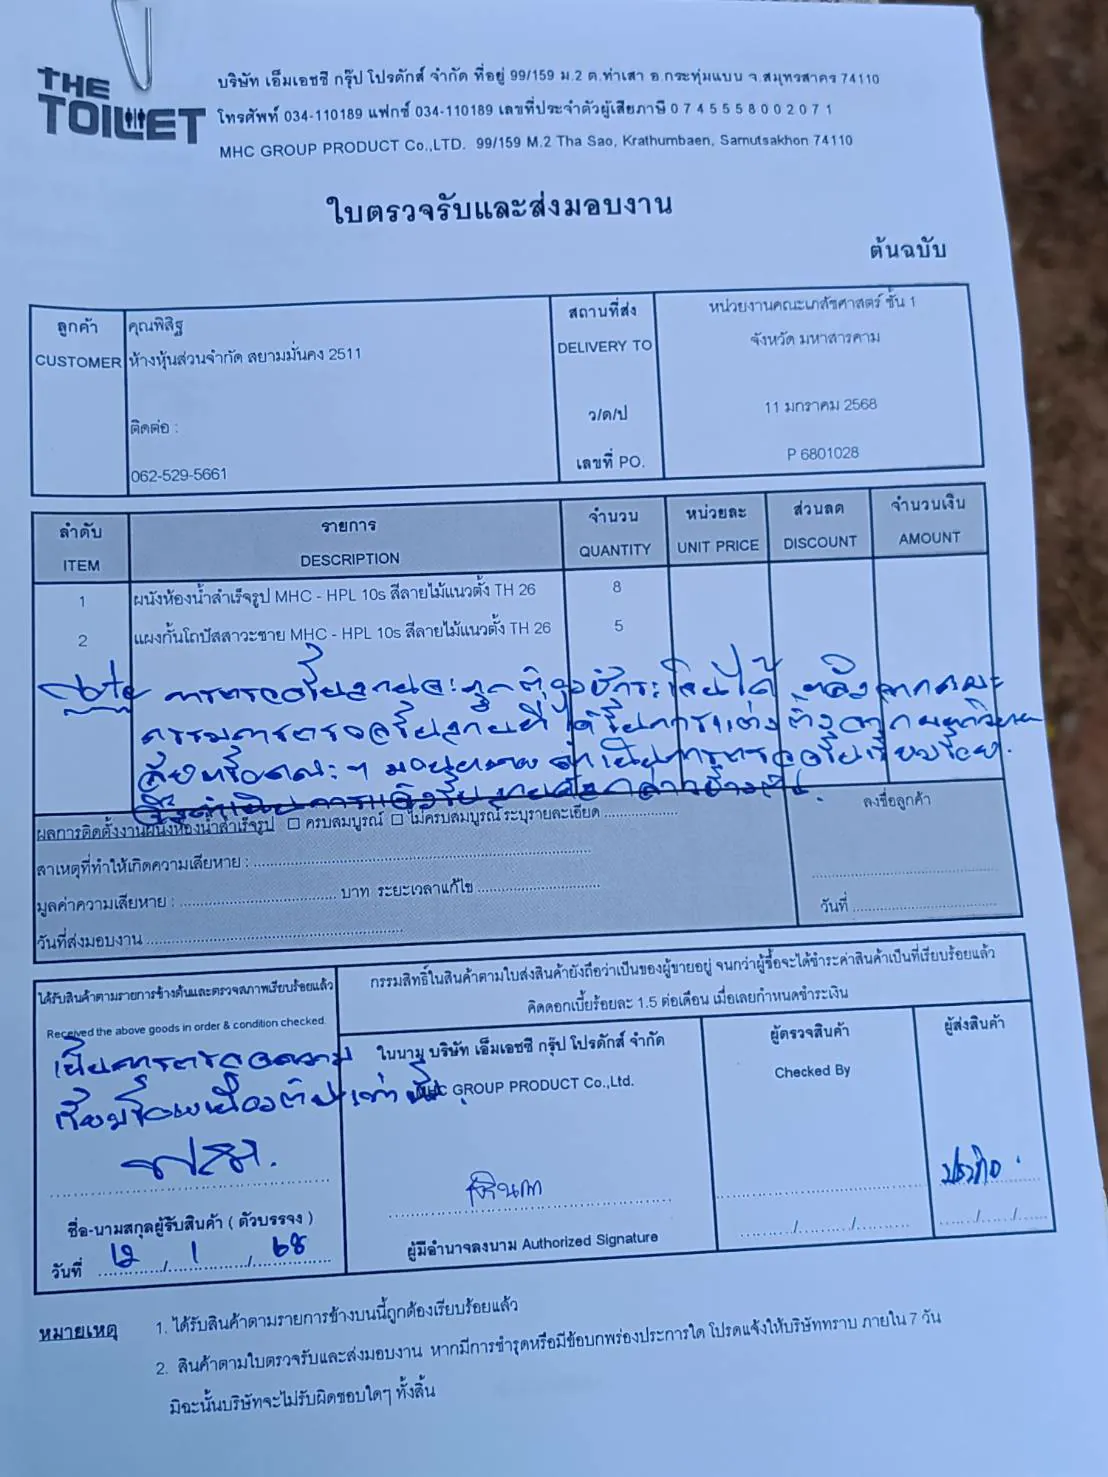 THE TOILET
บริษัท เอ็มเอชซี กรุ๊ป โปรดักส์ จำกัด ที่อยู่ 99/159 ม.2 ต.ท่าเสา อ.กระทุ่มแบน จ.สมุทรสาคร 74110
โทรศัพท์ 034-110189 แฟกซ์ 034-110189 เลขที่ประจำตัวผู้เสียภาษี 0 7 4 5 5 5 8 0 0 2 0 7 1
MHC GROUP PRODUCT Co.,LTD. 99/159 M.2 Tha Sao, Krathumbaen, Samutsakhon 74110
ใบตรวจรับและส่งมอบงาน
ต้นฉบับ
ลูกค้า คุณพิสิฐ สถานที่ส่ง หน่วยงานคณะเภสัชศาสตร์ ชั้น 1
CUSTOMER ห้างหุ้นส่วนจำกัด สยามมั่นคง 2511 DELIVERY TO จังหวัด มหาสารคาม
ติดต่อ : ว/ด/ป 11 มกราคม 2568
062-529-5661 เลขที่ PO. P 6801028
ลำดับ รายการ จำนวน หน่วยละ ส่วนลด จำนวนเงิน
ITEM DESCRIPTION QUANTITY UNIT PRICE DISCOUNT AMOUNT
1 ผนังห้องน้ำสำเร็จรูป MHC - HPL 10s สีลายไม้แนวตั้ง TH 26 8
2 แผงกั้นโถปัสสาวะชาย MHC - HPL 10s สีลายไม้แนวตั้ง TH 26 5
Note การตรวจรับงานจะถูกต้อง ได้ หลังจากคณะ
กรรมการตรวจรับงานที่ได้รับการแต่งตั้งจาก
เป็นการตรวจรับเรียบร้อย.
ผลการติดตั้งงานผนังห้องน้ำสำเร็จรูป ☐ ครบสมบูรณ์ ☐ ไม่ครบสมบูรณ์ ระบุรายละเอียด .................... ลงชื่อลูกค้า
สาเหตุที่ทำให้เกิดความเสียหาย : ....................
มูลค่าความเสียหาย : .................... บาท ระยะเวลาแก้ไข .................... วันที่ ....................
วันที่ส่งมอบงาน ....................
ได้รับสินค้าตามรายการข้างต้นและตรวจสภาพเรียบร้อยแล้ว
Received the above goods in order & condition checked.
กรรมสิทธิ์ในสินค้าตามใบส่งสินค้ายังถือว่าเป็นของผู้ขายอยู่ จนกว่าผู้ซื้อจะได้ชำระค่าสินค้าเป็นที่เรียบร้อยแล้ว
คิดดอกเบี้ยร้อยละ 1.5 ต่อเดือน เมื่อเลยกำหนดชำระเงิน
เป็นการตรวจความ
เรียบร้อยเบื้องต้นเท่านั้น.
ในนาม บริษัท เอ็มเอชซี กรุ๊ป โปรดักส์ จำกัด
MHC GROUP PRODUCT Co.,Ltd.
ผู้ตรวจสินค้า
Checked By
ผู้ส่งสินค้า
ชื่อ-นามสกุลผู้รับสินค้า ( ตัวบรรจง )
วันที่ 12 / 1 / 68
ผู้มีอำนาจลงนาม Authorized Signature
......../......../........
......../......../........
หมายเหตุ 1. ได้รับสินค้าตามรายการข้างบนนี้ถูกต้องเรียบร้อยแล้ว
2. สินค้าตามใบตรวจรับและส่งมอบงาน หากมีการชำรุดหรือมีข้อบกพร่องประการใด โปรดแจ้งให้บริษัททราบ ภายใน 7 วัน
มิฉะนั้นบริษัทจะไม่รับผิดชอบใดๆ ทั้งสิ้น